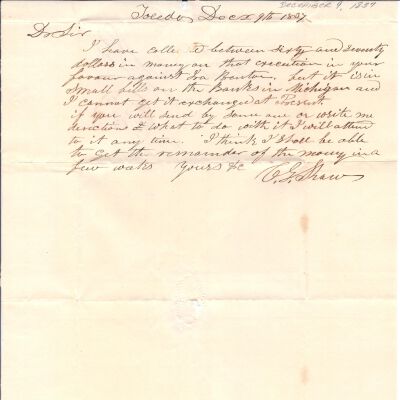 DECEMBER 9, 1837
Toledo Decr 9th 1837
Dr Sir
I have colle ed between sixty and seventy
dollars in money on that execution in your
favour against Ira Benton, but it is in
small bills on the Banks in Michigan and
I cannot get it exchanged at
if you will send by some one or write me
directions what to do with it I will attend
to it any time. I think I shall be able
to get the remainder of the money in a
few weaks Yours &c
C. G. Shaw